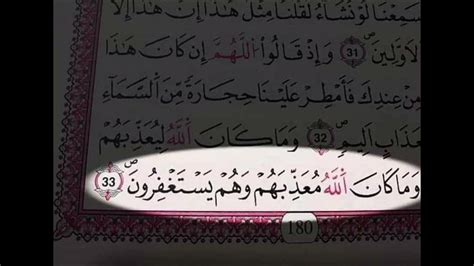 سَمِعْنَا لَوْ نَشَاءُ لَقُلْنَا مِثْلَ هَٰذَا إِنْ هَٰذَا
الْأَوَّلِينَ 31 وَإِذْ قَالُوا اللَّهُمَّ إِن كَانَ هَٰذَا
مِنْ عِندِكَ فَأَمْطِرْ عَلَيْنَا حِجَارَةً مِّنَ السَّمَآءِ
بِعَذَابٍ أَلِيمٍ 32 وَمَا كَانَ اللَّهُ لِيُعَذِّبَهُمْ
وَمَا كَانَ اللَّهُ مُعَذِّبَهُمْ وَهُمْ يَسْتَغْفِرُونَ 33
180